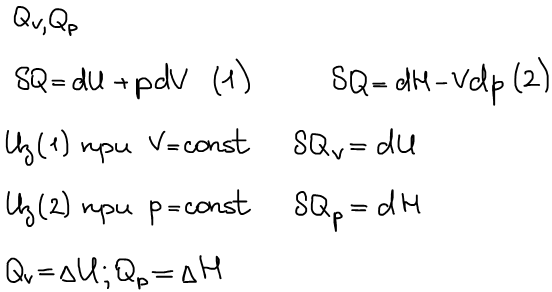 Qv, Qp
δQ = dU + pdV (1) δQ = dH - Vdp (2)
Из (1) при V = const δQv = dU
Из (2) при p = const δQp = dH
Qv = ΔU; Qp = ΔH